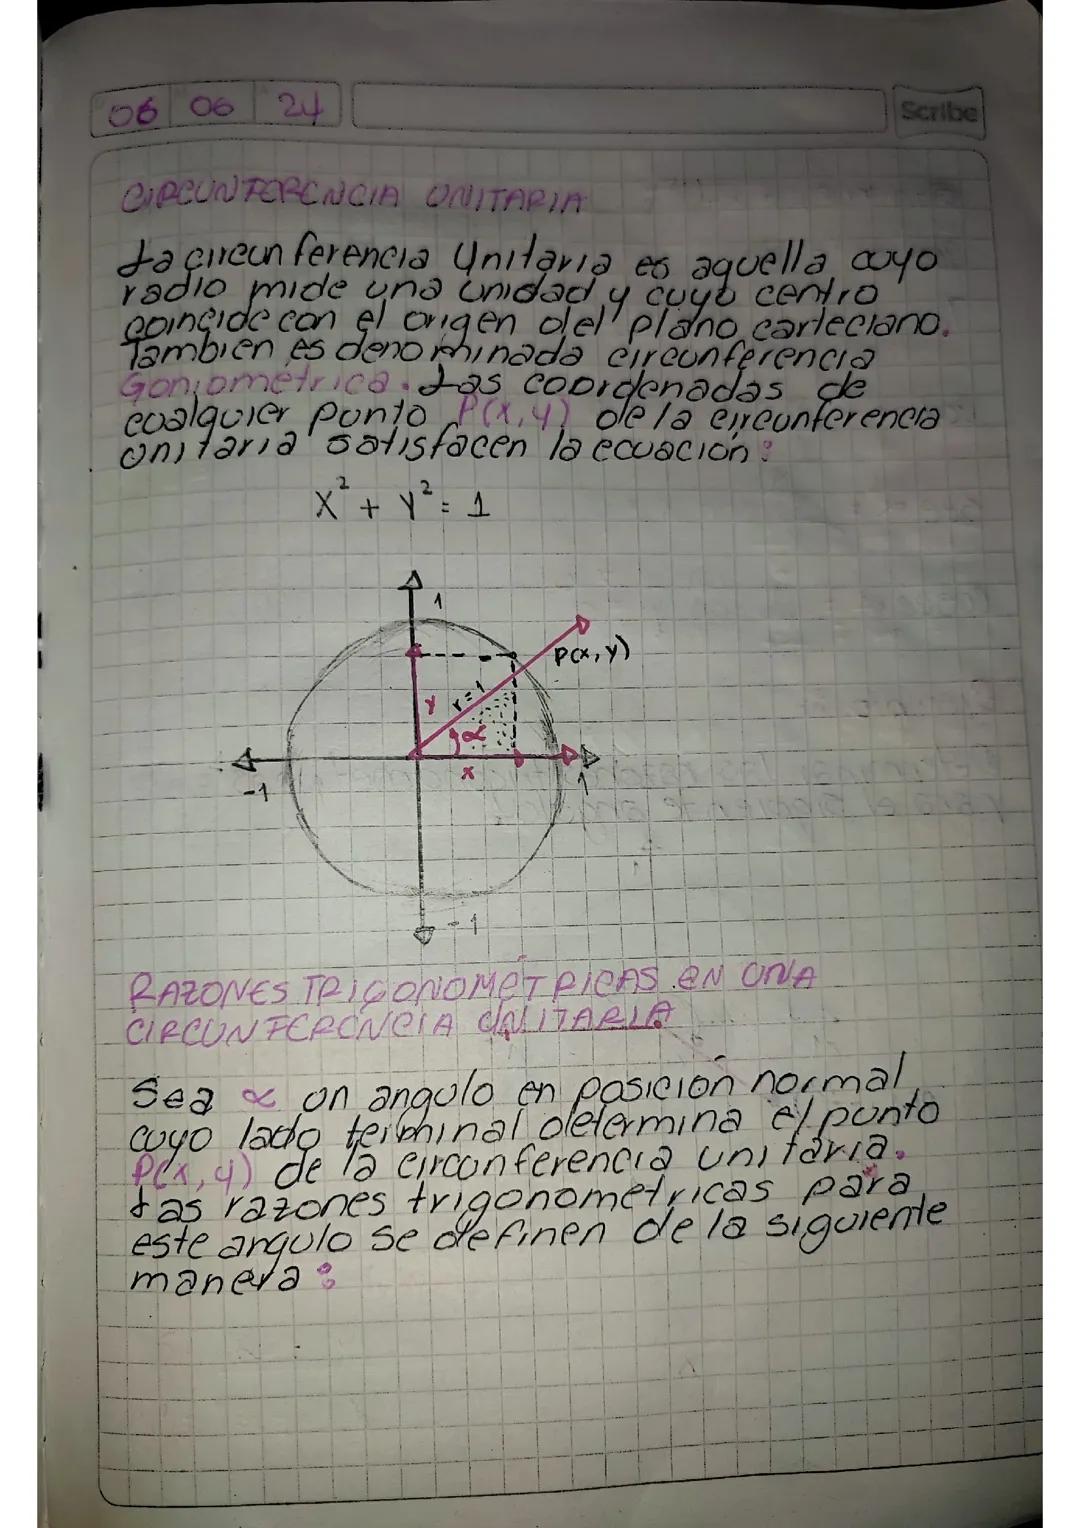 06 06 24
Scribe
CIRCUNFERENCIA UNITARIA
La circunferencia Unitaria es aquella cuyo
radio mide una unidad y cuyo centro
coincide con el origen del plano carteciano.
Tambien es denominada circunferencia
Goniometrica. Las coordenadas de
cualquier punto P(x,y) de la circunferencia
unitaria satisfacen la ecuación:
X² + Y² = 1
1
P(x,y)
r=1
y
α
x
-1
1
-1
RAZONES TRIGONOMETRICAS EN UNA
CIRCUNFERENCIA UNITARIA
Sea α un angulo en posición normal
cuyo lado terminal determina el punto
P(x,y) de la circunferencia unitaria.
Las razones trigonometricas para
este angulo se definen de la siguiente
manera: